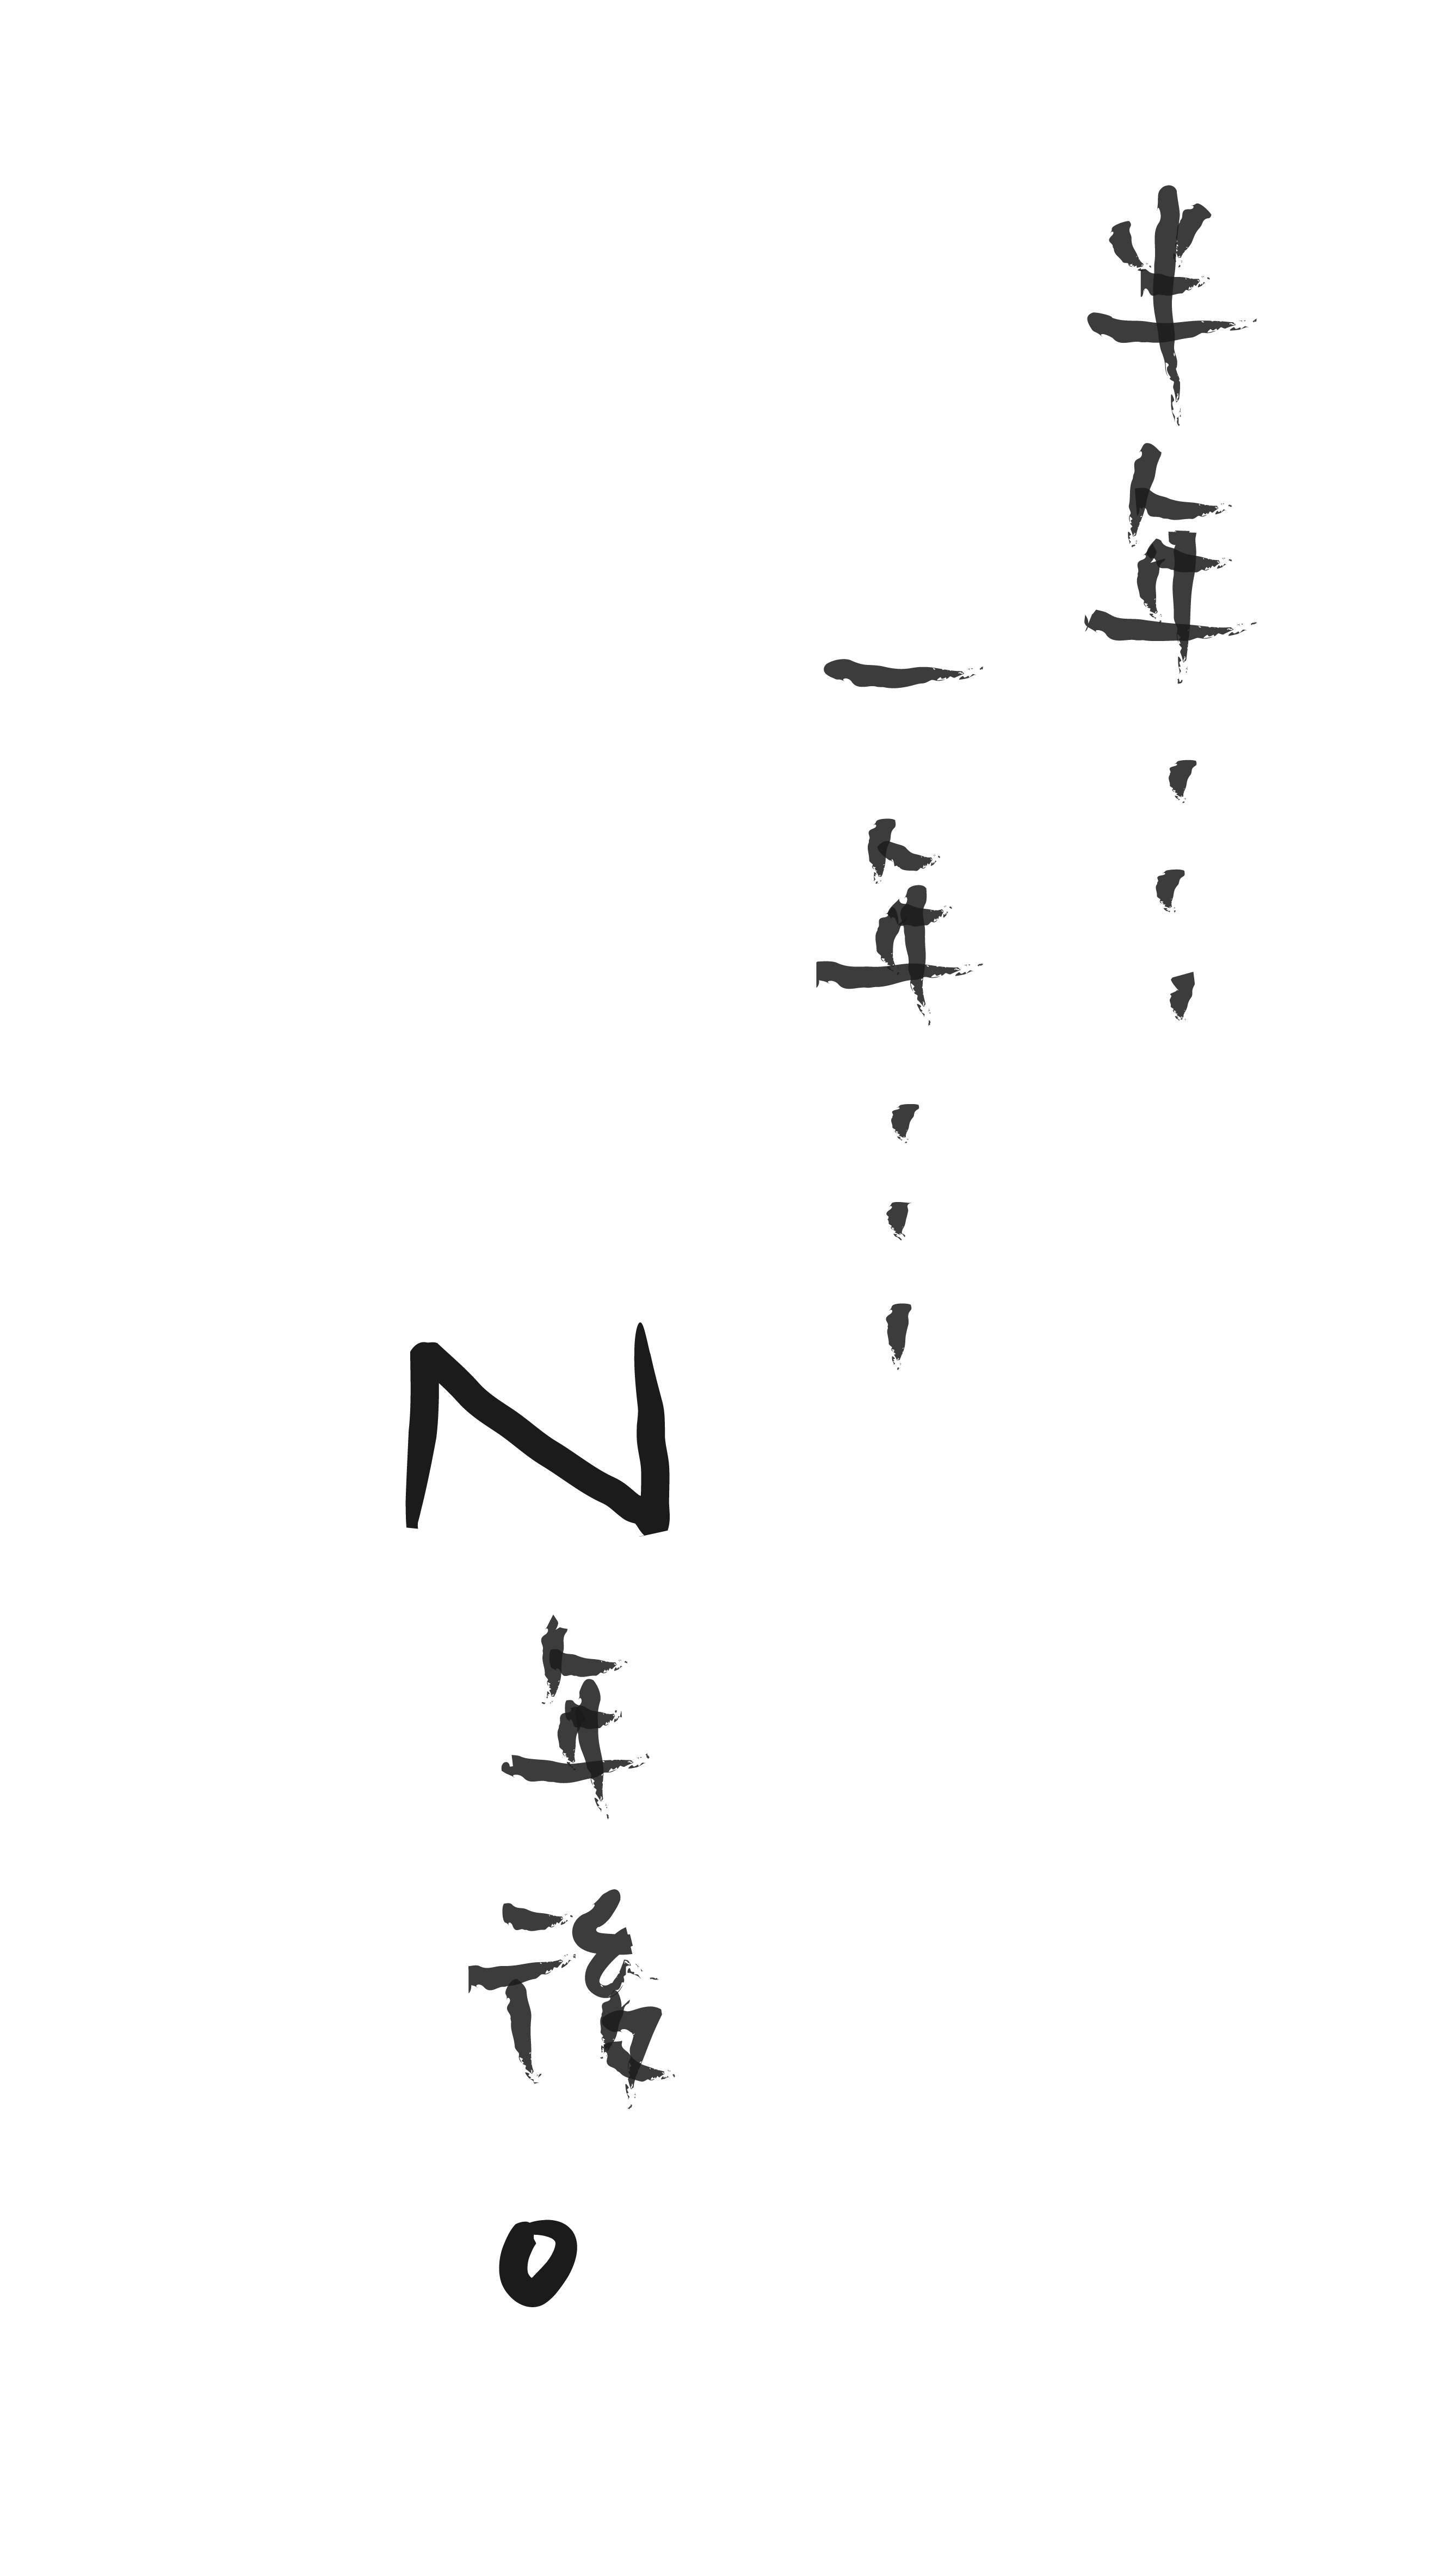 半年・・・
一年・・・
N年後。